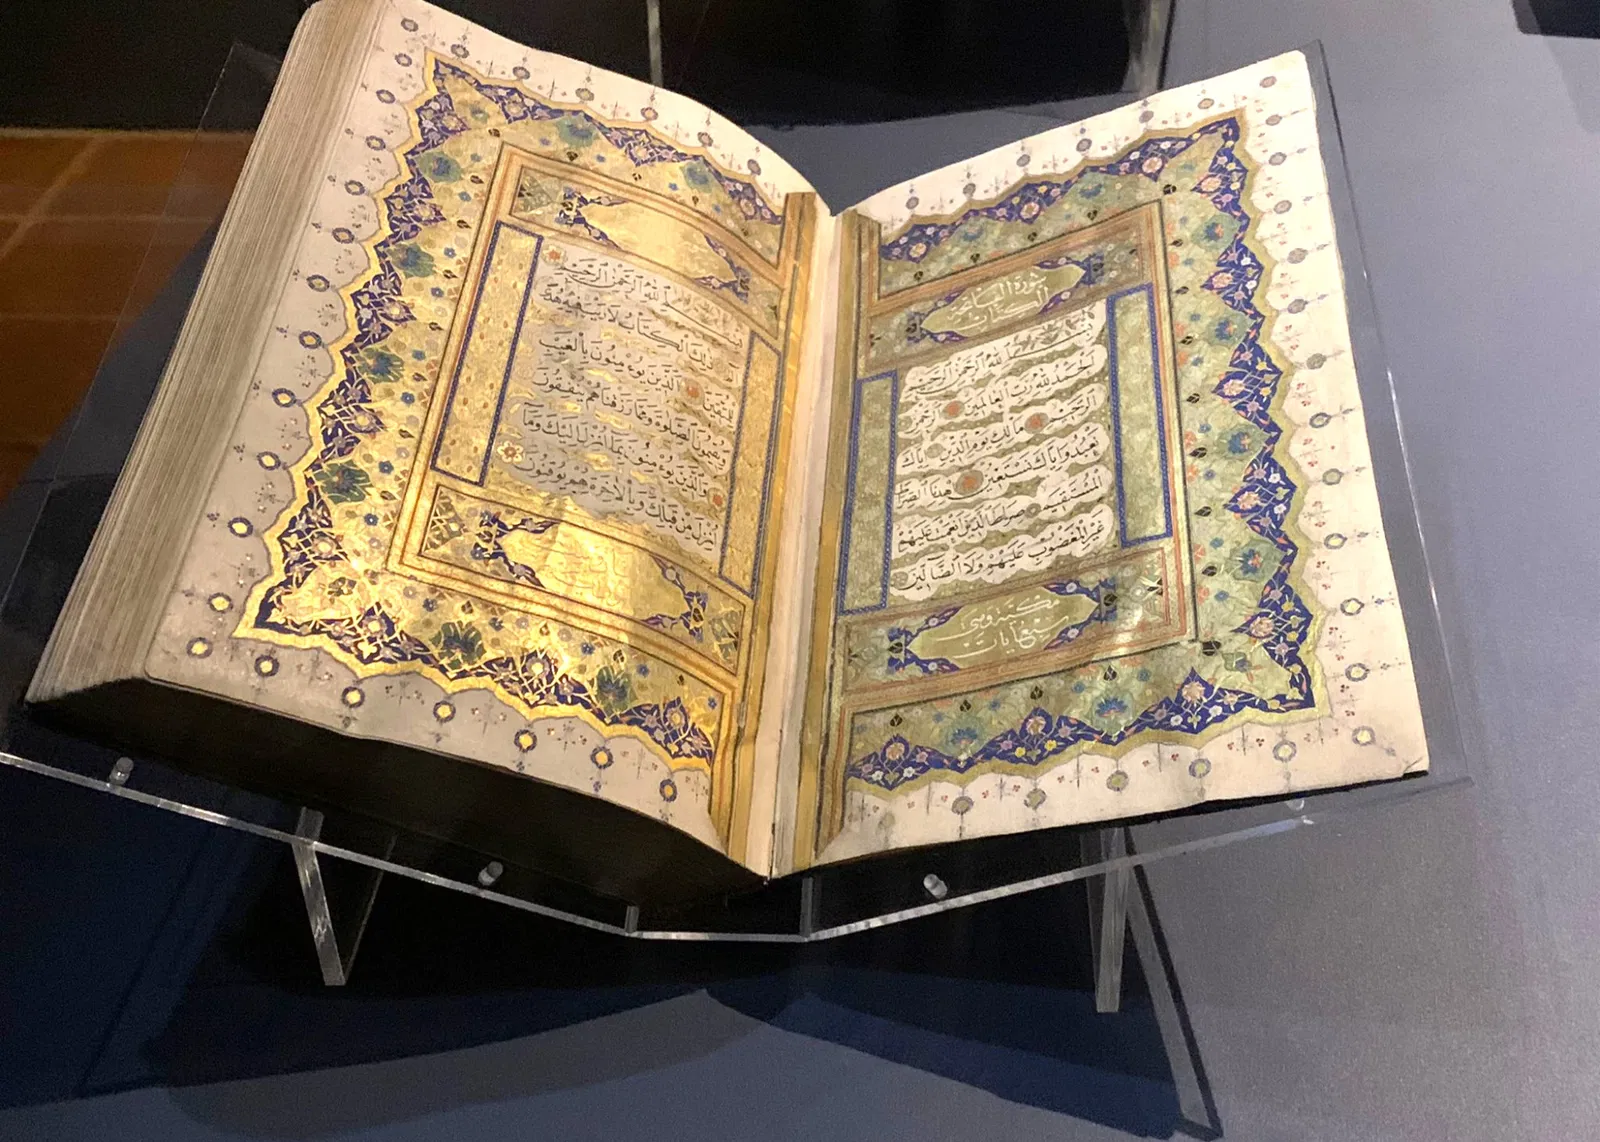 سورة الفاتحة
الكتاب
بسم الله الرحمن الرحيم
الحمد لله رب العالمين الرحمن
الرحيم مالك يوم الدين اياك
نعبد واياك نستعين اهدنا الصراط
المستقيم صراط الذين انعمت عليهم
غير المغضوب عليهم ولا الضالين
مكية وهي
سبع آيات
بسم الله الرحمن الرحيم
ذلك الكتاب لا ريب فيه هدى
للمتقين الذين يؤمنون بالغيب
ويقيمون الصلوة ومما رزقناهم ينفقون
والذين يؤمنون بما انزل اليك وما
انزل من قبلك وبالاخرة هم يوقنون